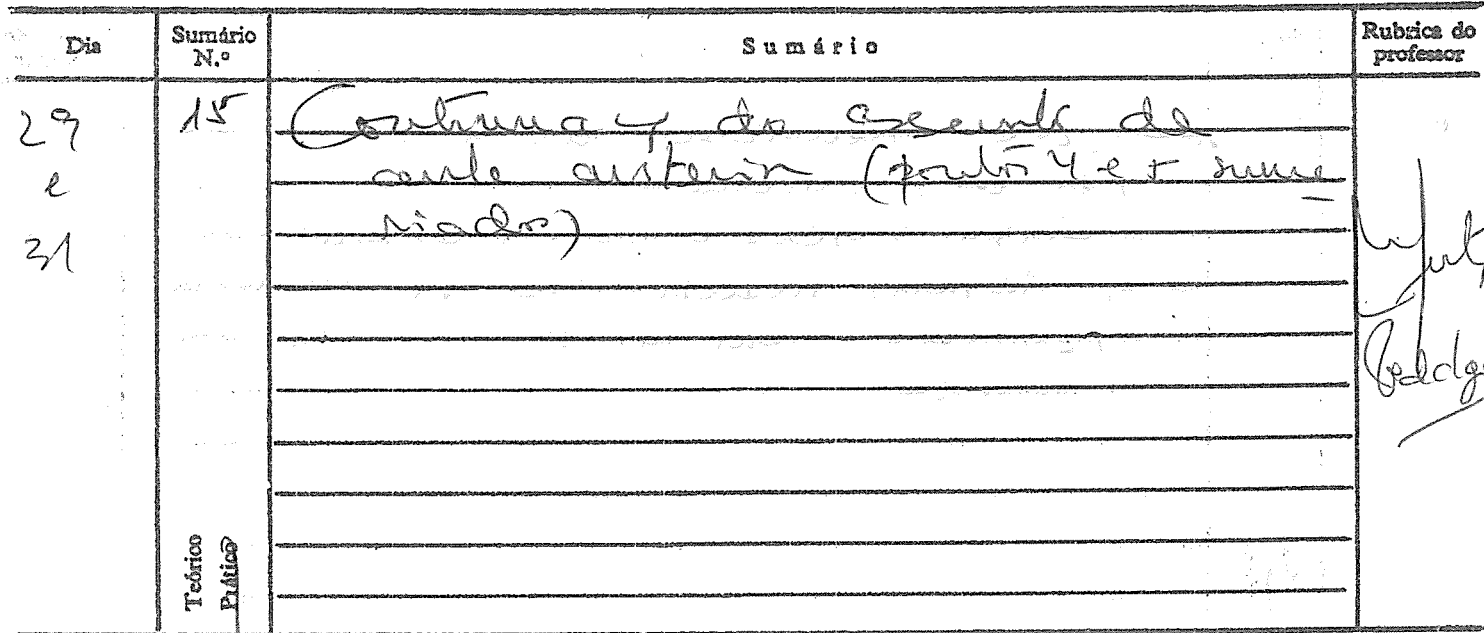 Dia
Sumário N.º
Sumário
Rubrica do professor
29 e 31
15
Continuaç do assunto da
aula anterior (pontos 4 e 5 suma
riados)
Teórico
Prático